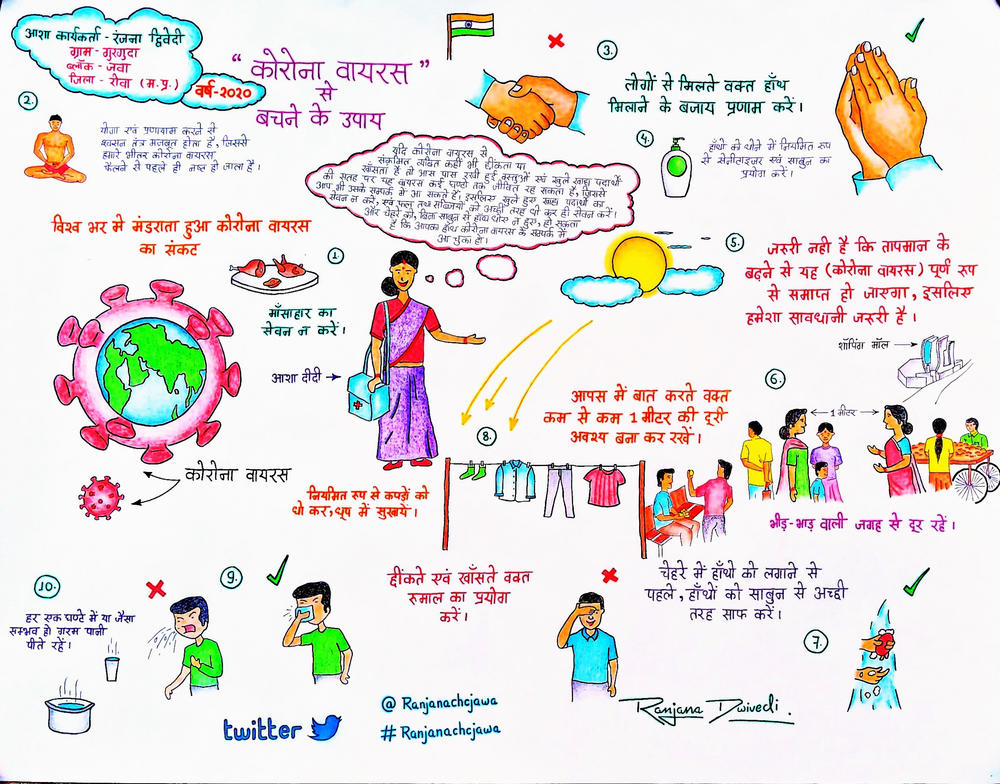 आशा कार्यकर्ता - रंजना द्विवेदी
ग्राम - गुरगुदा
ब्लॉक - जवा
जिला - रीवा (म.प्र.)
वर्ष-२०२०
“ कोरोना वायरस ”
से
बचने के उपाय
2.
योगा एवं प्रणायाम करने से
श्वसन तंत्र मजबूत होता है, जिससे
हमारे भीतर कोरोना वायरस
फैलने से पहले ही नष्ट हो जाता है।
3.
लोगों से मिलते वक्त हाँथ
मिलाने के बजाय प्रणाम करें।
4.
हाँथों को धोने में नियमित रूप
से सेनीटाइजर एवं साबुन का
प्रयोग करें।
यदि कोरोना वायरस से
संक्रमित व्यक्ति कहीं भी छींकता या
खाँसता है तो आस पास रखी हुई वस्तुओं एवं खुले खाद्य पदार्थो
की सतह पर यह वायरस कई घण्टो तक जीवित रह सकता है, जिससे
आप भी उसके सम्पर्क में आ सकते हैं। इसलिए खुले हुए खाद्य पदार्थो का
सेवन न करें, एवं फल तथा सब्जियों को अच्छी तरह धो कर ही सेवन करें।
और चेहरे को, बिना साबुन से हाँथ धोए न छुए, हो सकता
है कि आपका हाँथ कोरोना वायरस के सम्पर्क में
आ चुका हो।
विश्व भर मे मंडराता हुआ कोरोना वायरस
का संकट
1.
माँसाहार का
सेवन न करें।
आशा दीदी
5.
जरूरी नही है कि तापमान के
बढ़ने से यह (कोरोना वायरस) पूर्ण रूप
से समाप्त हो जाएगा, इसलिए
हमेशा सावधानी जरूरी है।
शॉपिंग मॉल
6.
1 मीटर
आपस में बात करते वक्त
कम से कम 1 मीटर की दूरी
अवश्य बना कर रखें।
भीड़-भाड़ वाली जगह से दूर रहें।
8.
नियमित रूप से कपड़ों को
धो कर, धूप में सुखायें।
कोरोना वायरस
10.
हर एक घण्टे में या जैसा
सम्भव हो गरम पानी
पीते रहें।
9.
छींकते एवं खाँसते वक्त
रूमाल का प्रयोग
करें।
चेहरे में हाँथो को लगाने से
पहले, हाँथों को साबुन से अच्छी
तरह साफ करें।
7.
twitter
@ Ranjanachcjawa
# Ranjanachcjawa
Ranjana Dwivedi.